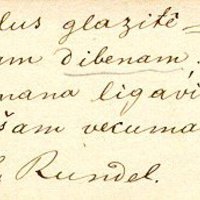 dus glazitē
um dibenam.
mana ligavi
šam vecuma
Rundel.